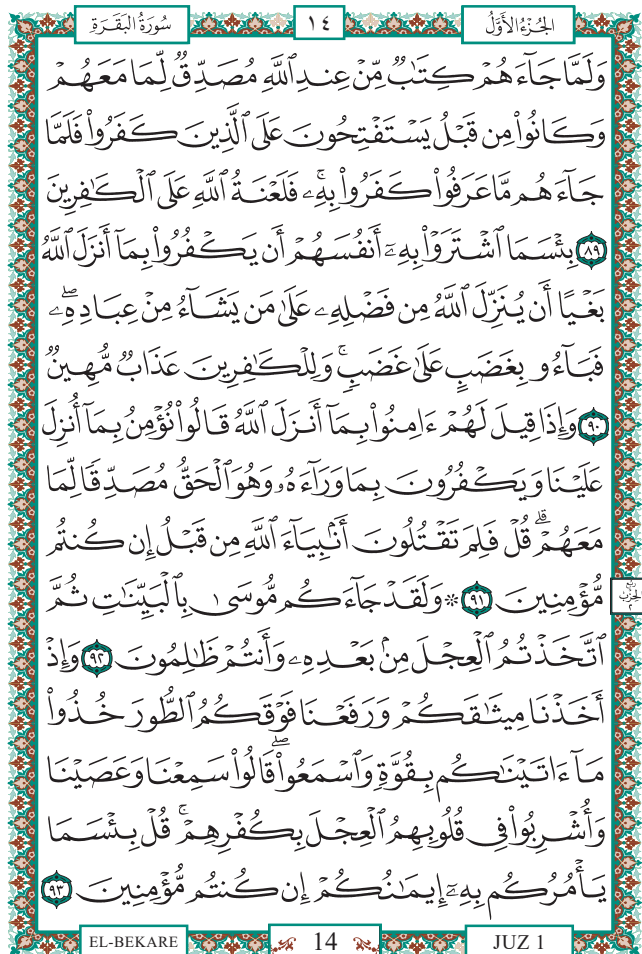 سُورَةُ البَقَرَةِ ١٤ الجُزْءُ الأَوَّلُ
وَلَمَّا جَآءَهُمْ كِتَٰبٌ مِّنْ عِندِ ٱللَّهِ مُصَدِّقٌ لِّمَا مَعَهُمْ
وَكَانُوا۟ مِن قَبْلُ يَسْتَفْتِحُونَ عَلَى ٱلَّذِينَ كَفَرُوا۟ فَلَمَّا
جَآءَهُم مَّا عَرَفُوا۟ كَفَرُوا۟ بِهِۦ ۚ فَلَعْنَةُ ٱللَّهِ عَلَى ٱلْكَٰفِرِينَ
٨٩ بِئْسَمَا ٱشْتَرَوْا۟ بِهِۦٓ أَنفُسَهُمْ أَن يَكْفُرُوا۟ بِمَآ أَنزَلَ ٱللَّهُ
بَغْيًا أَن يُنَزِّلَ ٱللَّهُ مِن فَضْلِهِۦ عَلَىٰ مَن يَشَآءُ مِنْ عِبَادِهِۦ ۖ
فَبَآءُو بِغَضَبٍ عَلَىٰ غَضَبٍ ۚ وَلِلْكَٰفِرِينَ عَذَابٌ مُّهِينٌ
٩٠ وَإِذَا قِيلَ لَهُمْ ءَامِنُوا۟ بِمَآ أَنزَلَ ٱللَّهُ قَالُوا۟ نُؤْمِنُ بِمَآ أُنزِلَ
عَلَيْنَا وَيَكْفُرُونَ بِمَا وَرَآءَهُۥ وَهُوَ ٱلْحَقُّ مُصَدِّقًا لِّمَا
مَعَهُمْ ۗ قُلْ فَلِمَ تَقْتُلُونَ أَنۢبِيَآءَ ٱللَّهِ مِن قَبْلُ إِن كُنتُم
مُّؤْمِنِينَ ٩١ ۞ وَلَقَدْ جَآءَكُم مُّوسَىٰ بِٱلْبَيِّنَٰتِ ثُمَّ
ٱتَّخَذْتُمُ ٱلْعِجْلَ مِنۢ بَعْدِهِۦ وَأَنتُمْ ظَٰلِمُونَ ٩٢ وَإِذْ
أَخَذْنَا مِيثَٰقَكُمْ وَرَفَعْنَا فَوْقَكُمُ ٱلطُّورَ خُذُوا۟
مَآ ءَاتَيْنَٰكُم بِقُوَّةٍ وَٱسْمَعُوا۟ ۖ قَالُوا۟ سَمِعْنَا وَعَصَيْنَا
وَأُشْرِبُوا۟ فِى قُلُوبِهِمُ ٱلْعِجْلَ بِكُفْرِهِمْ ۚ قُلْ بِئْسَمَا
يَأْمُرُكُم بِهِۦٓ إِيمَٰنُكُمْ إِن كُنتُم مُّؤْمِنِينَ ٩٣
EL-BEKARE 14 JUZ 1